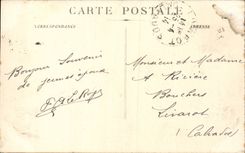 CARTE POSTALE
CORRESPONDANCE
ADRESSE
Bonjour Souvenir
de jeunes époux
Monsieur et Madame
A Rivière
Bouchers
Livarot
Calvados